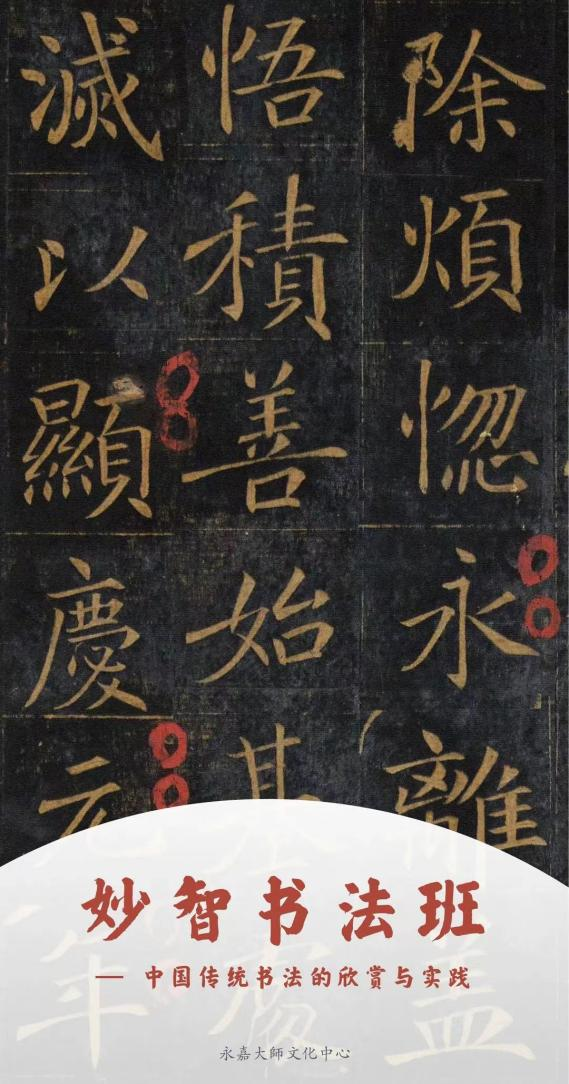 除煩惚永離蓋
悟積善始基
滅以顯慶元年
妙智书法班
— 中国传统书法的欣赏与实践
永嘉大師文化中心